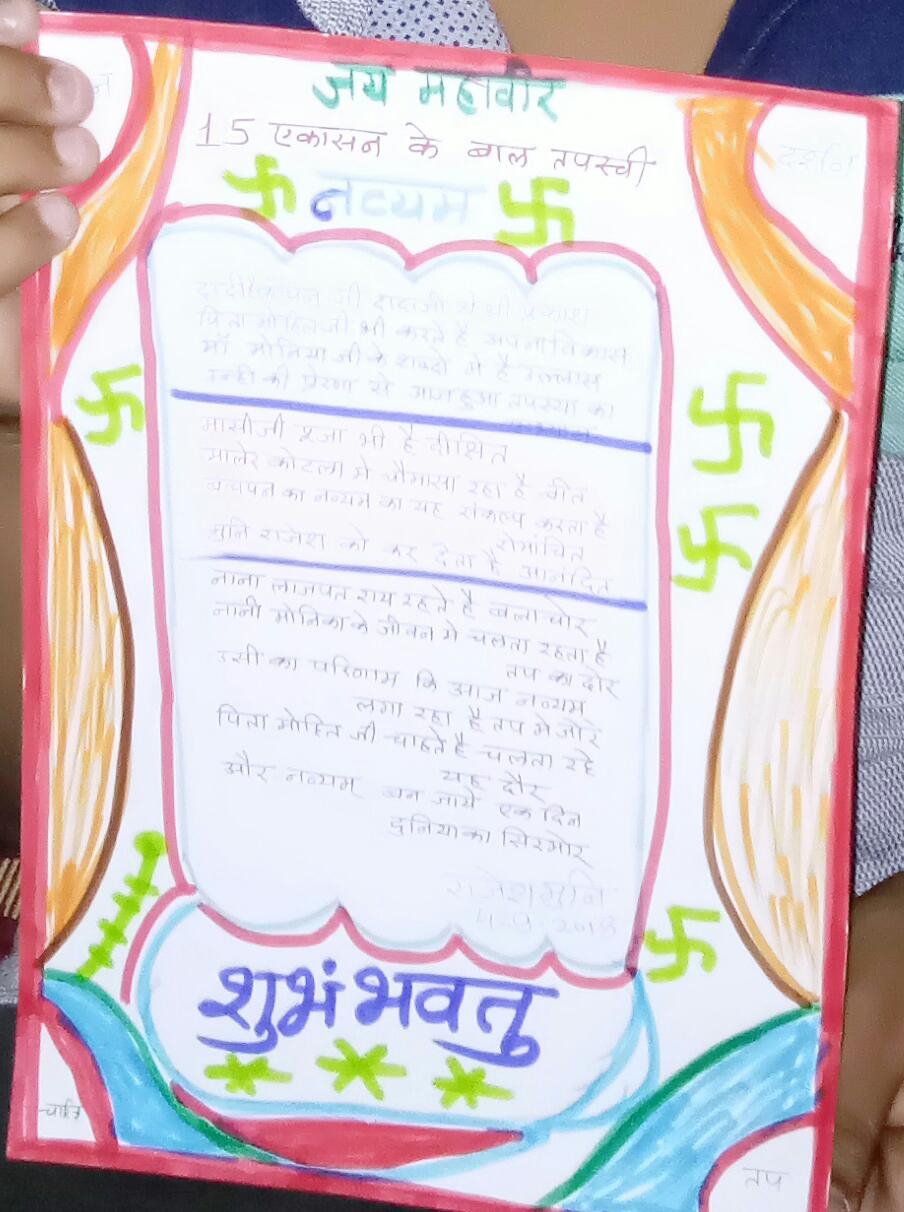 जय महावीर
15 एकासन के बाल तपस्वी
नव्यम
दर्शन
जी दादाजी श्री प्रकाश
पिता मोहित जी भी करते है अपना विकास
माँ मोनिया जी के शब्दो मे है उल्लास
उन्ही की प्रेरणा से आज हुआ तपस्या का
मासीजी पूजा भी है दीक्षित
मालेर कोटला मे चौमासा रहा है बीत
बचपन का नव्यम का यह संकल्प करता है
रोमांचित
मुनि राजेश को कर देता है आनंदित
नाना लाजपत राय रहते है बलाचोर
नानी मोनिका के जीवन मे चलता रहता है
तप का दोर
उसी का परिणाम कि आज नव्यम
लगा रहा है तप मे जोर
पिता मोहित जी चाहते है चलता रहे
यह दौर
और नव्यम बन जाये एक दिन
दुनिया का सिरमोर
राजेश मुनि
4-9-2018
शुभं भवतु
चारित्र
तप